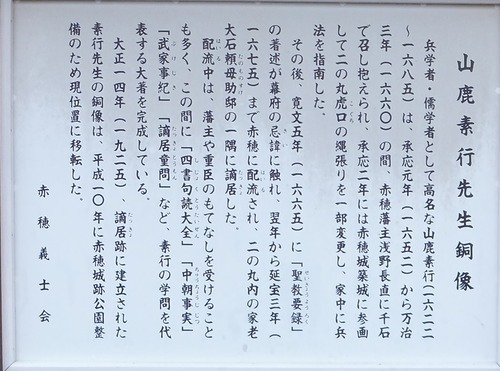 山鹿素行先生銅像
兵学者・儒学者として高名な山鹿素行(一六二二
～一六八五)は、承応元年(一六五二)から万治
三年(一六六〇)の間、赤穂藩主浅野長直に千石
で召し抱えられ、承応二年には赤穂城築城に参画
して二の丸虎口の縄張りを一部変更し、家中に兵
法を指南した。
その後、寛文五年(一六六五)に「聖教要録」
の著述が幕府の忌諱に触れ、翌年から延宝三年(
一六七五)まで赤穂に配流され、二の丸内の家老
大石頼母助邸の一隅に謫居した。
配流中は、藩主や重臣のもてなしを受けること
も多く、この間に「四書句読大全」「中朝事実」
「武家事紀」「謫居童問」など、素行の学問を代
表する大著を完成している。
大正一四年(一九二五)、謫居跡に建立された
素行先生の銅像は、平成一〇年に赤穂城跡公園整
備のため現位置に移転した。
赤穂義士会